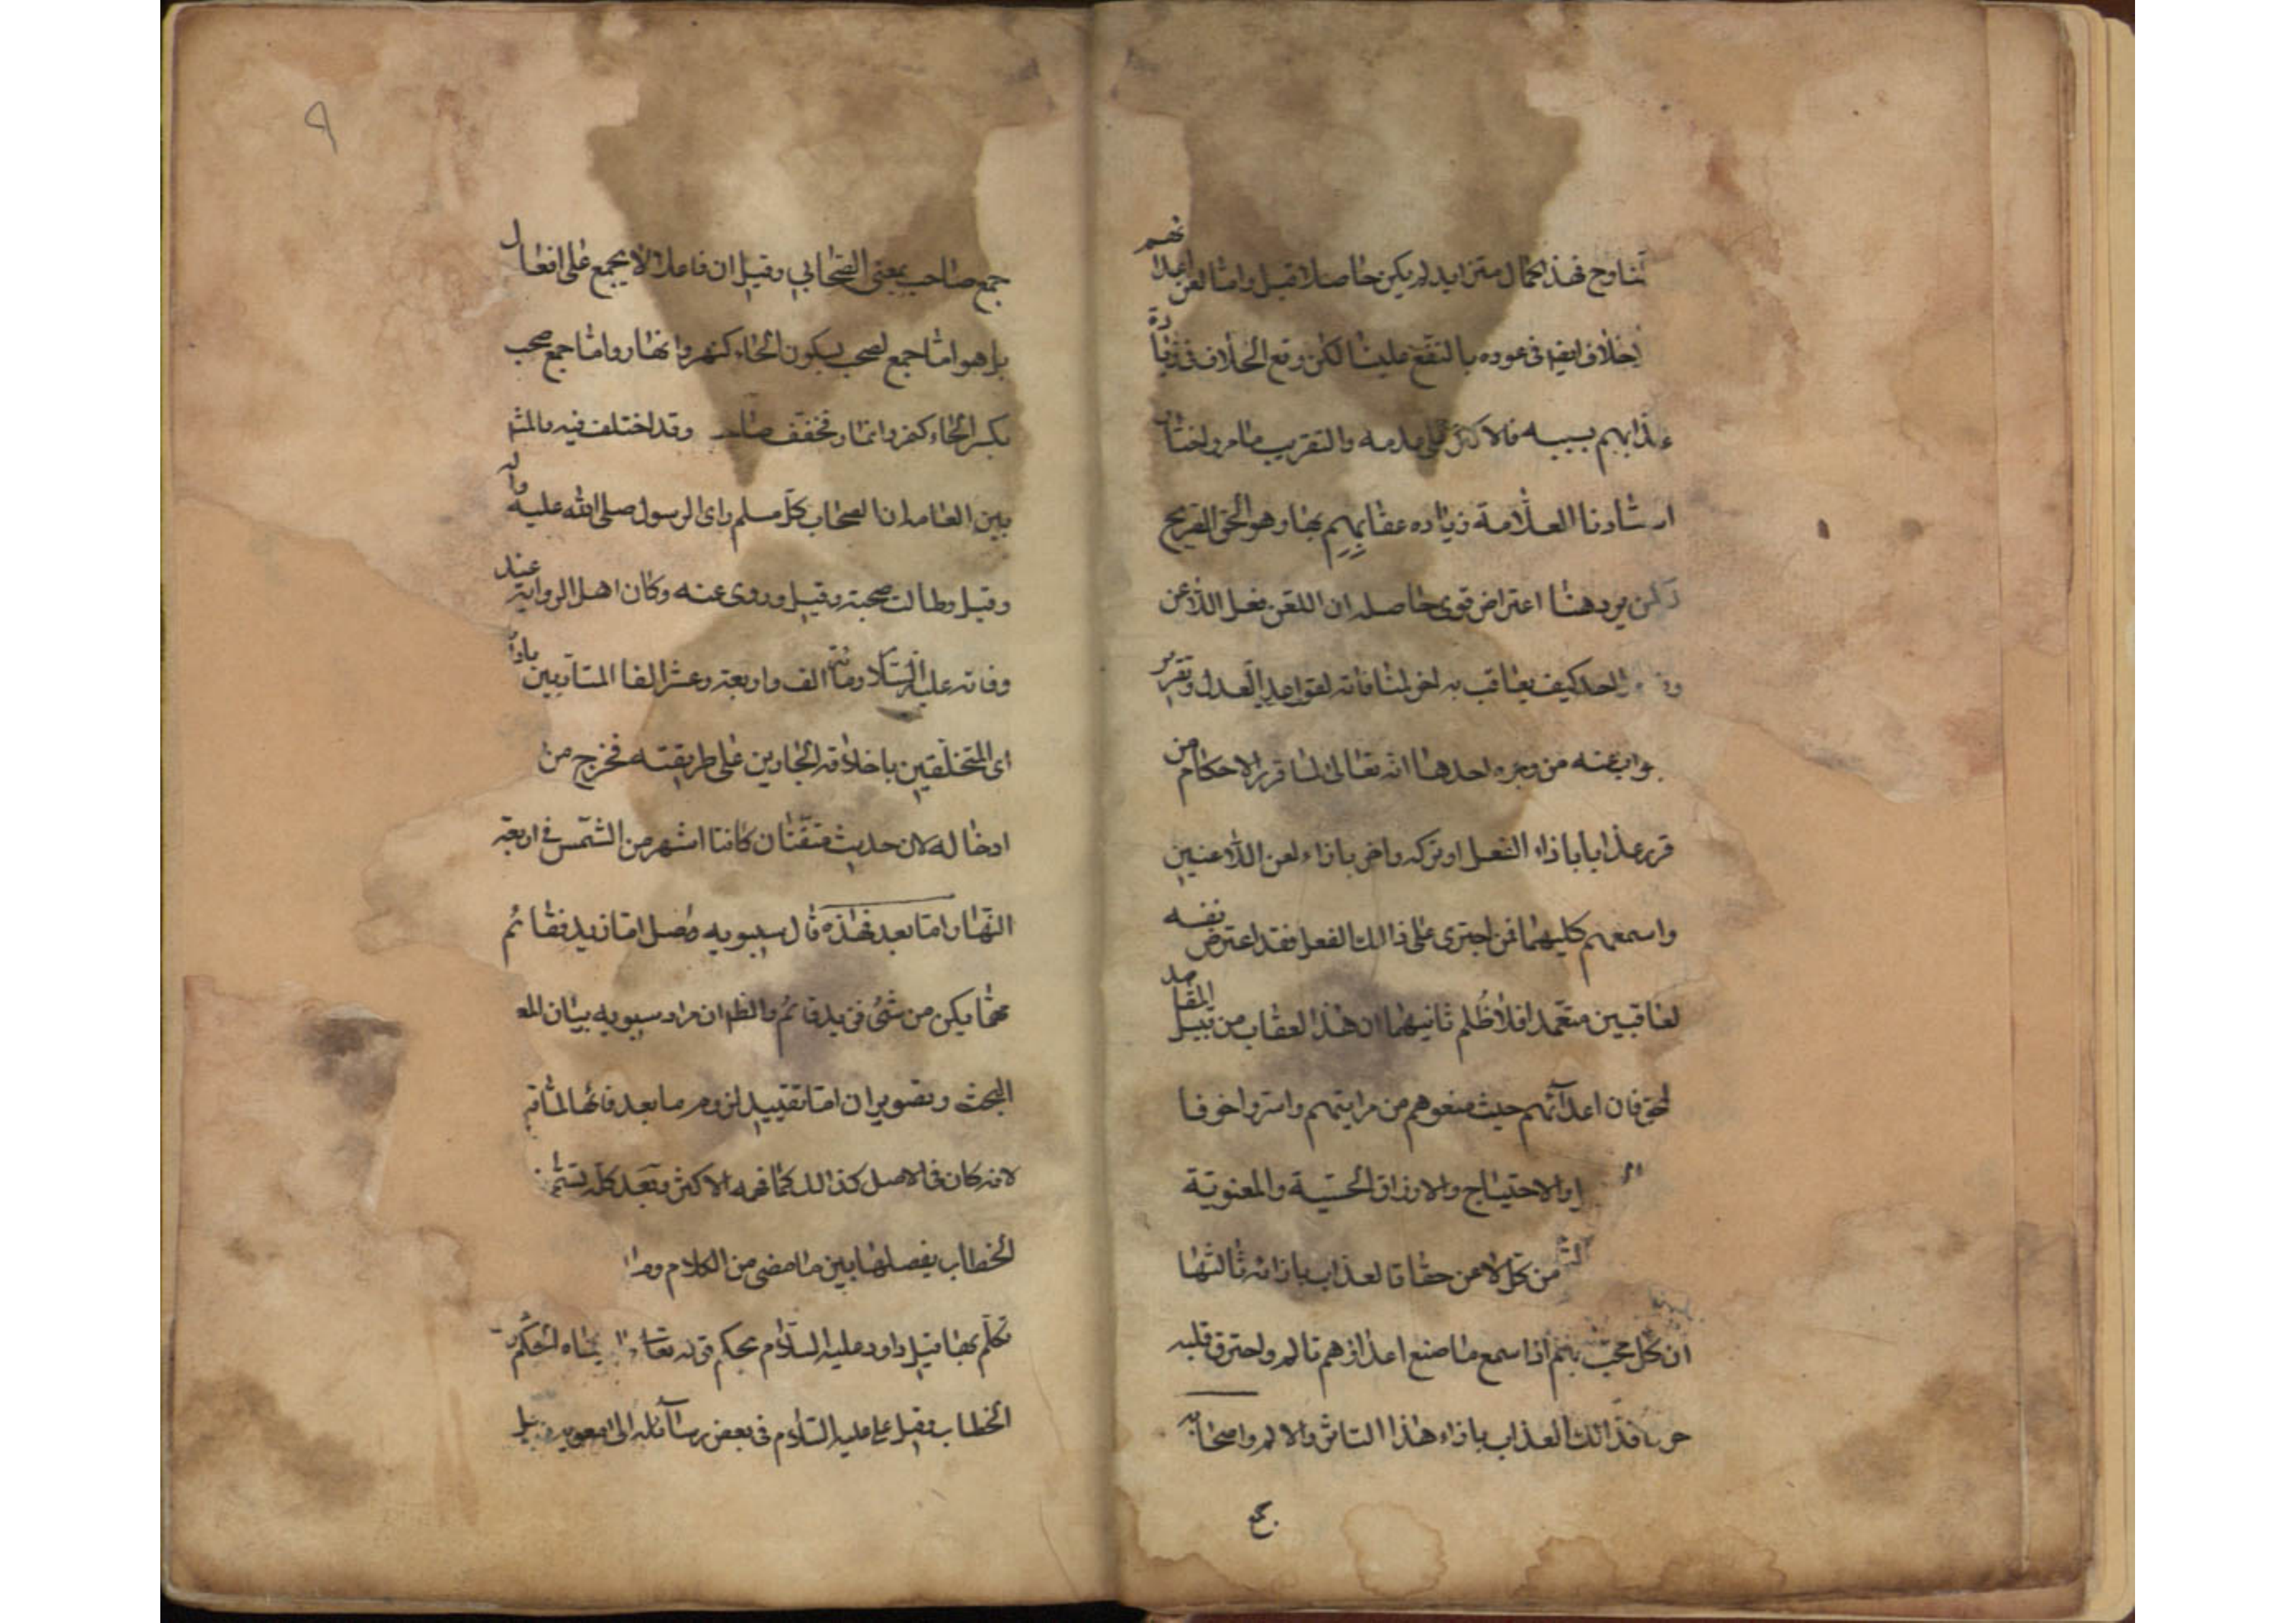 فهذا كمال متزايد لم يكن حاصلا قبل واما لعن اعدائهم
خلاف ايضا فى عوده بالنفع علينا لكن وقع الخلاف فى زيادة
عذابهم بسببه فالاكثر على عدمه والتقريب ما مر واختار
استادنا العلامة زياده عقابهم بها وهو الحق الصريح
لكن يرد هنا اعتراض قوى حاصله ان اللعن فعل اللاعن
احد كيف يعاقب به اخر لمنافاته لقواعد العدل وتقرير
جوابه عنه من وجوه احدها انه تعالى لما قرر الاحكام من
قرر عذابا باذاء الفعل او تركه واخر باذاء لعن اللاعنين
واسمعهم كليهما فمن اجترى على ذالك الفعل فقد اعترض نفسه
لعاقبين متعمدا فلا ظلم ثانيهما ان هذا العقاب من قبيل المقاصد
لحق فان اعدآئهم حيث منعوهم من مراتبهم واستروا خوفا
والاحتياج والارزاق الحسية والمعنوية
من كل لاعن حقا فالعذاب باذائه ثالثها
ان كل محب بهم اذا سمع ما صنع اعداؤهم تالم واحترق قلبه
حزنا فذالك العذاب باذاء هذا التاثر والالم واصحابه
جمع صاحب بمعنى الصحابي وقيل ان فاعلا لا يجمع على افعال
بل هو اما جمع لصحب بسكون الحاء كنهر وانهار واما جمع صحب
بكسر الحاء كنمر وانمار مخفف صاحب وقد اختلف فيه فالمشهور
بين العامة ان الصحاب كل مسلم راى الرسول صلى الله عليه واله
وقيل وطالت صحبته وقيل وروى عنه وكان اهل الرواية عند
وفاته عليه السلام مائة الف واربعة وعشر الفا المتأدبين بادا
اى المتخلقين باخلاقه الجارين على طريقته فخرج من
ادخاله لان حديث كانتا اشهر من الشمس فى اربعة
النهار اما بعد فهذه قال سيبويه فصل اما زيد فقائم
مهما يكن من شئ فزيد قائم والظ ان مراد سيبويه بيان المعـ
البحت وتصوير ان اما تقييد لزوم ما بعد فائها لما قـ
لانه كان فى الاصل كذالك كما فهمه الاكثر وتعد كله تسمى
الخطاب يفصلها بين ما مضى من الكلام وما
تكلم بها قيل داود عليه السلام بحكم قوله تعالى آتيناه الحكمة
الخطاب وقيل على عليه السلام فى بعض رسآئله الى معوية وقيل